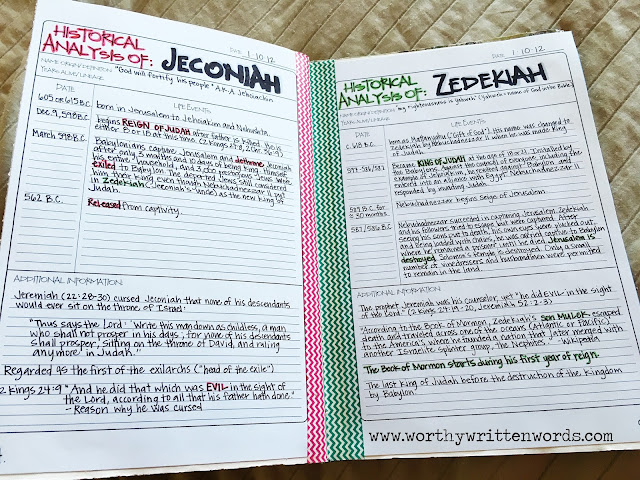 DATE: 1.10.12
HISTORICAL
ANALYSIS OF: JECONIAH
NAME ORIGIN/DEFINITION: "God will fortify his people" A.K.A. Jehoiachin
YEARS ALIVE/LINEAGE:
DATE
LIFE EVENTS
605 OR 615 B.C. born in Jerusalem to Jehoiakim and Nehushta.
Dec 9, 598 B.C. begins REIGN OF JUDAH after father is killed. He is
either 8 or 18 at this time. (2 Kings 24:8, 2 Chr. 36:9)
March 598 B.C. Babylonians capture Jerusalem and dethrone Jeconiah
after only 3 months and 10 days of being King. Himself,
his entire household, and 3,000 prestigious Jews were
exiled to Babylon. The deported Jews still considered
him their king even though Nebuchadnezzar II put
in Zedekiah (Jeremiah's uncle) as the new king of
Judah.
562 B.C. Released from captivity.
ADDITIONAL INFORMATION:
Jeremiah (22:28-30) cursed Jeconiah that none of his descendants
would ever sit on the throne of Israel:
"Thus says the Lord: Write this man down as childless, a man
who shall not prosper in his days; for none of his descendants
shall prosper, sitting on the throne of David, and ruling
anymore in Judah."
Regarded as the first of the exilarchs ("head of the exile")
2 Kings 24:9 "And he did that which was EVIL in the sight of
the Lord, according to all that his father hath done."
- Reason why he was cursed
DATE: 1.10.12
HISTORICAL
ANALYSIS OF: ZEDEKIAH
NAME ORIGIN/DEFINITION: "my righteousness is Yahweh" (Yahweh = name of God in the Bible)
YEARS ALIVE/LINEAGE:
DATE
LIFE EVENTS
C. 618 B.C. Born as Mattanyahu ("Gift of God"). His name was changed to
Zedekiah by Nebuchadnezzar II when he was made King
of Judah.
597-586/587 Became KING OF JUDAH at the age of 18 or 21. Installed by
the Babylonians. Against the counsel of everyone, including the
example of Jehoiakim, he revolted against Babylon, and
entered into an alliance with Egypt. Nebuchadnezzar II
responded by invading Judah.
589 B.C. for Nebuchadnezzar begins seige of Jerusalem
≈ 30 months
587/586 B.C. Nebuchadnezzar succeeded in capturing Jerusalem. Zedekiah
and his followers tried to escape but were captured. After
seeing his sons put to death, his own eyes were plucked out
and being loaded with chains, he was carried captive to Babylon
where he remained a prisoner until he died. Jerusalem is
destroyed. Solomon's temple is destroyed. Only a small
number of vinedressers and husbandmen were permitted
to remain in the land.
ADDITIONAL INFORMATION:
The prophet Jeremiah was his counselor, yet "he did EVIL in the sight
of the Lord" (2 Kings 24:19-20, Jeremiah 52:2-3)
"According to the Book of Mormon, Zedekiah's son MULEK escaped
death and traveled across one of the oceans (Atlantic or Pacific)
to the Americas where he founded a nation that later merged with
another Israelite splinter group, the Nephites." - Wikipedia
The Book of Mormon starts during his first year of reign.
The last king of Judah before the destruction of the Kingdom
by Babylon
www.worthywrittenwords.com